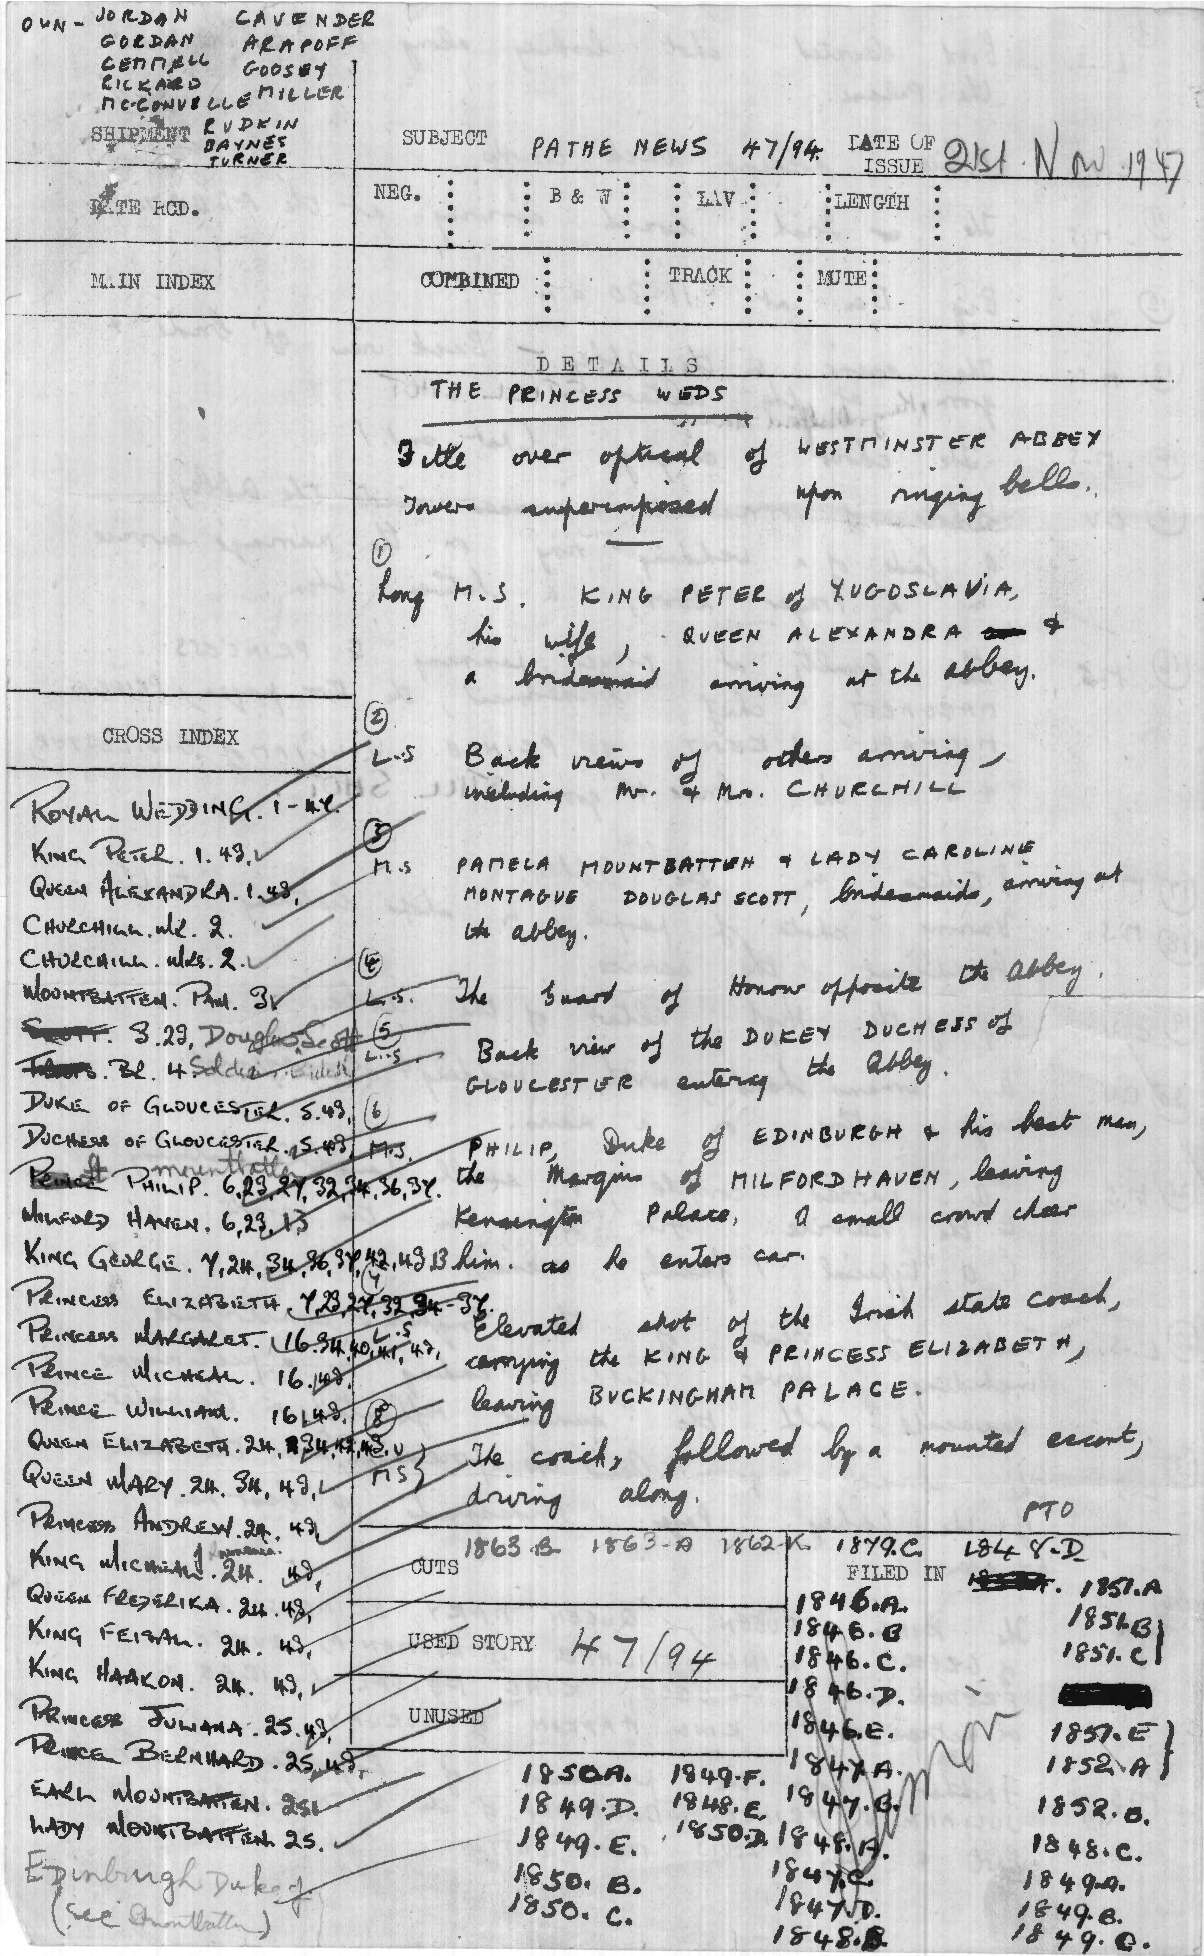 OWN - JORDAN CAVENDER
GORDAN ARAPOFF
GEMMELL GOOSEY
RICKARD MILLER
McCONVILLE
SHIPMENT RUDKIN
BAYNES
TURNER
SUBJECT PATHE NEWS 47/94. DATE OF ISSUE 21st Nov 1947
DATE RCD.
NEG. B & W LAV LENGTH
MAIN INDEX
COMBINED TRACK MUTE
DETAILS
THE PRINCESS WEDS
Title over optical of WESTMINSTER ABBEY
Towers superimposed upon ringing bells.
1
Long M.S. KING PETER of YUGOSLAVIA,
his wife, QUEEN ALEXANDRA &
a bridesmaid arriving at the abbey.
2
L.S Back views of others arriving,
including Mr. & Mrs. CHURCHILL
3
M.S PAMELA MOUNTBATTEN & LADY CAROLINE
MONTAGUE DOUGLAS SCOTT, bridesmaids, arriving at
the abbey.
4
L.S. The Guard of Honour opposite the Abbey.
5
L.S Back view of the DUKE & DUCHESS of
GLOUCESTER entering the Abbey.
6
M.S. PHILIP, Duke of EDINBURGH & his best man,
the Marquis of MILFORDHAVEN, leaving
Kensington Palace. A small crowd cheer
him as he enters car.
7
L.S Elevated shot of the Irish state coach,
carrying the KING & PRINCESS ELIZABETH,
leaving BUCKINGHAM PALACE.
8
MS The coach, followed by a mounted escort,
driving along.
PTO
CROSS INDEX
ROYAL WEDDING. 1-47.
KING PETER. 1. 43.
QUEEN ALEXANDRA. 1. 43,
CHURCHILL. MR. 2.
CHURCHILL. MRS. 2.
MOUNTBATTEN. PAM. 3
SCOTT. 3.23, Douglas Scott
BR. 4. Soldiers
DUKE OF GLOUCESTER. 5.43,
DUCHESS OF GLOUCESTER. 5.43,
Mountbatten
PRINCE PHILIP. 6,23,27,32,34,36,37.
MILFORD HAVEN. 6,23,
KING GEORGE. 7,24,34,36,37,42,43
PRINCESS ELIZABETH. 7,23,27,32,34-37.
PRINCESS MARGARET. 16.34,40,41,43,
PRINCE MICHEAL. 16.43.
PRINCE WILLIAM. 16.43.
QUEEN ELIZABETH. 24, 34,42,43.
QUEEN MARY. 24. 34, 43,
PRINCESS ANDREW. 24. 43,
KING MICHEAL of Roumania. 24. 43,
QUEEN FREDERIKA. 24. 43,
KING FEISAL. 24. 43,
KING HAAKON. 24. 43,
PRINCESS JULIANA. 25. 43,
PRINCE BERNHARD. 25. 43,
EARL MOUNTBATTEN. 25
LADY MOUNTBATTEN. 25.
Edinburgh Duke of
(see Mountbatten)
1863.B 1863-A 1862-K. 1879.C. 1848.D
CUTS
FILED IN 1851.A
1846.A. 1851.B
1846.B 1851.C
USED STORY 47/94
1846.C.
1846.D.
UNUSED
1846.E. 1851.E
1850.A. 1849.F. 1847.A. 1852.A
1849.D. 1848.E. 1847.B. 1852.B.
1849.E. 1850.D. 1848.A. 1848.C.
1850.B. 1847.C. 1849.A.
1850.C. 1847.D. 1849.B.
1848.B. 1849.C.